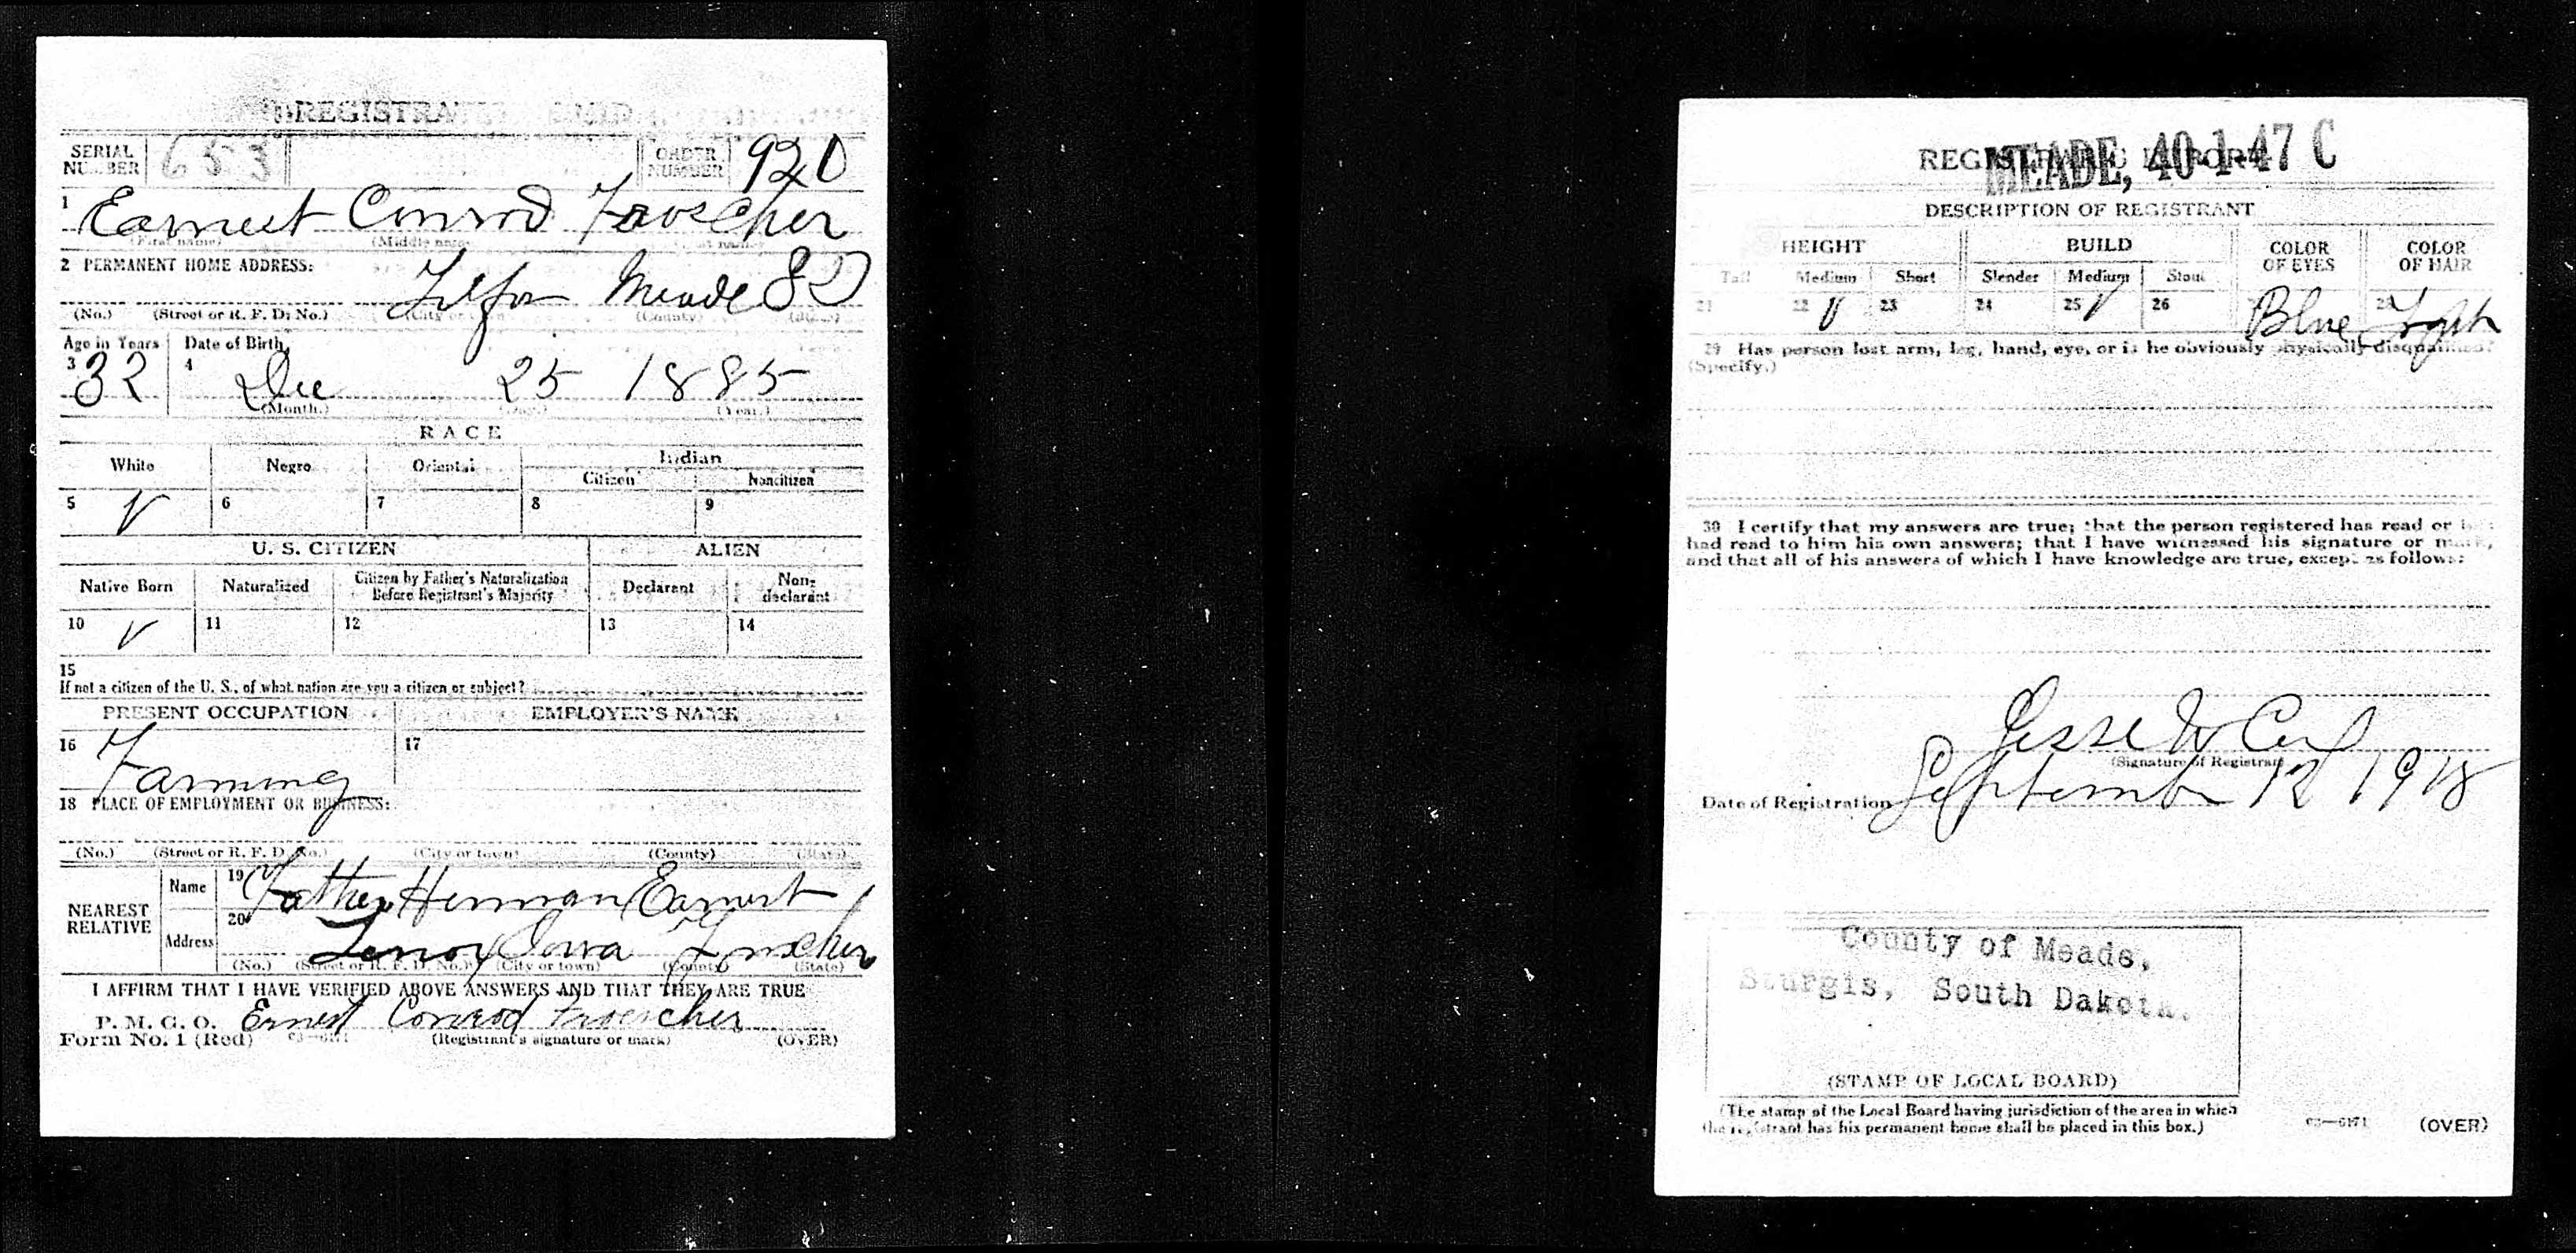 REGISTRATION CARD
SERIAL NUMBER 653 ORDER NUMBER 920
1 Earnest Conrod Froscher
(First name) (Middle name) (Last name)
2 PERMANENT HOME ADDRESS:
Tilfor Meade SD
(No.) (Street or R. F. D. No.) (City or town) (County) (State)
Age in Years Date of Birth
3 32 4 Dec 25 1885
(Month.) (Day.) (Year.)
RACE
White Negro Oriental Indian
Citizen Noncitizen
5 V 6 7 8 9
U. S. CITIZEN ALIEN
Native Born Naturalized Citizen by Father's Naturalization Before Registrant's Majority Declarant Non-declarant
10 V 11 12 13 14
15
If not a citizen of the U. S., of what nation are you a citizen or subject?
PRESENT OCCUPATION EMPLOYER'S NAME
16 Farming 17
18 PLACE OF EMPLOYMENT OR BUSINESS:
(No.) (Street or R. F. D. No.) (City or town) (County) (State)
NEAREST RELATIVE Name 19 Father Herman Earnest
Address 20 Lenox Iowa Froscher
(No.) (Street or R. F. D. No.) (City or town) (County) (State)
I AFFIRM THAT I HAVE VERIFIED ABOVE ANSWERS AND THAT THEY ARE TRUE
P. M. G. O.
Form No. 1 (Red) 03—6171 Ernest Conrod Froescher
(Registrant's signature or mark) (OVER)
REGISTRAR'S REPORT
MEADE, 40-1-47 C
DESCRIPTION OF REGISTRANT
HEIGHT BUILD COLOR OF EYES COLOR OF HAIR
Tall Medium Short Slender Medium Stout
21 22 V 23 24 25 V 26 Blue 28
29 Has person lost arm, leg, hand, eye, or is he obviously physically disqualified?
(Specify.)
30 I certify that my answers are true; that the person registered has read or has
had read to him his own answers; that I have witnessed his signature or mark,
and that all of his answers of which I have knowledge are true, except as follows:
Jesse W
(Signature of Registrar)
Date of Registration September 12 1918
County of Meade,
Sturgis, South Dakota.
(STAMP OF LOCAL BOARD)
(The stamp of the Local Board having jurisdiction of the area in which
the registrant has his permanent home shall be placed in this box.)
03—6171 (OVER)